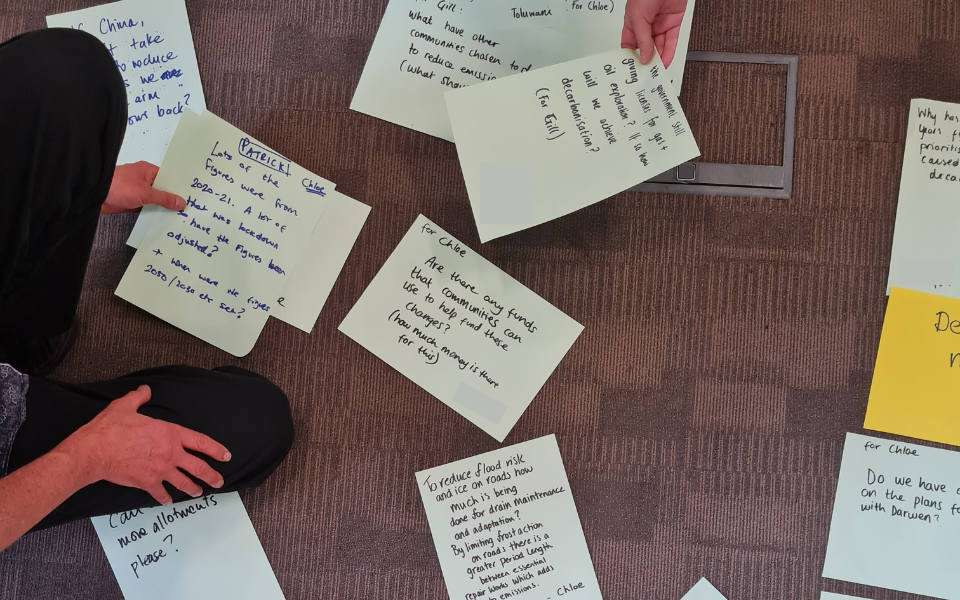 China,
take
to reduce
we
arm
ours back?
PATRICK!
Chloe
Lots of the
figures were from
2020-21. A lot of
that was lockdown
have the figures been
adjusted?
+ when were the figures
2050/2030 etc set?
e
Gill:
Toluwani
for Chloe)
what have other
communities chosen to d
to reduce emissi
(what shou
the government still
giving licenses for gas +
oil exploration? It is how
will we achieve
decarbonisation?
(For Gill)
for Chloe
Are there any funds
that communities can
use to help fund these
changes?
(how much money is there
for this)
To reduce flood risk
and ice on roads how
much is being
done for drain maintenance
and adaptation?
By limiting frost action
on roads there is a
greater period length
between essential
repair works which adds
to emissions.
- Chloe
more allotments
please?
Why has
years f
prioriti
caused
deca
De
for Chloe
Do we have
on the plans fo
with Darwen?